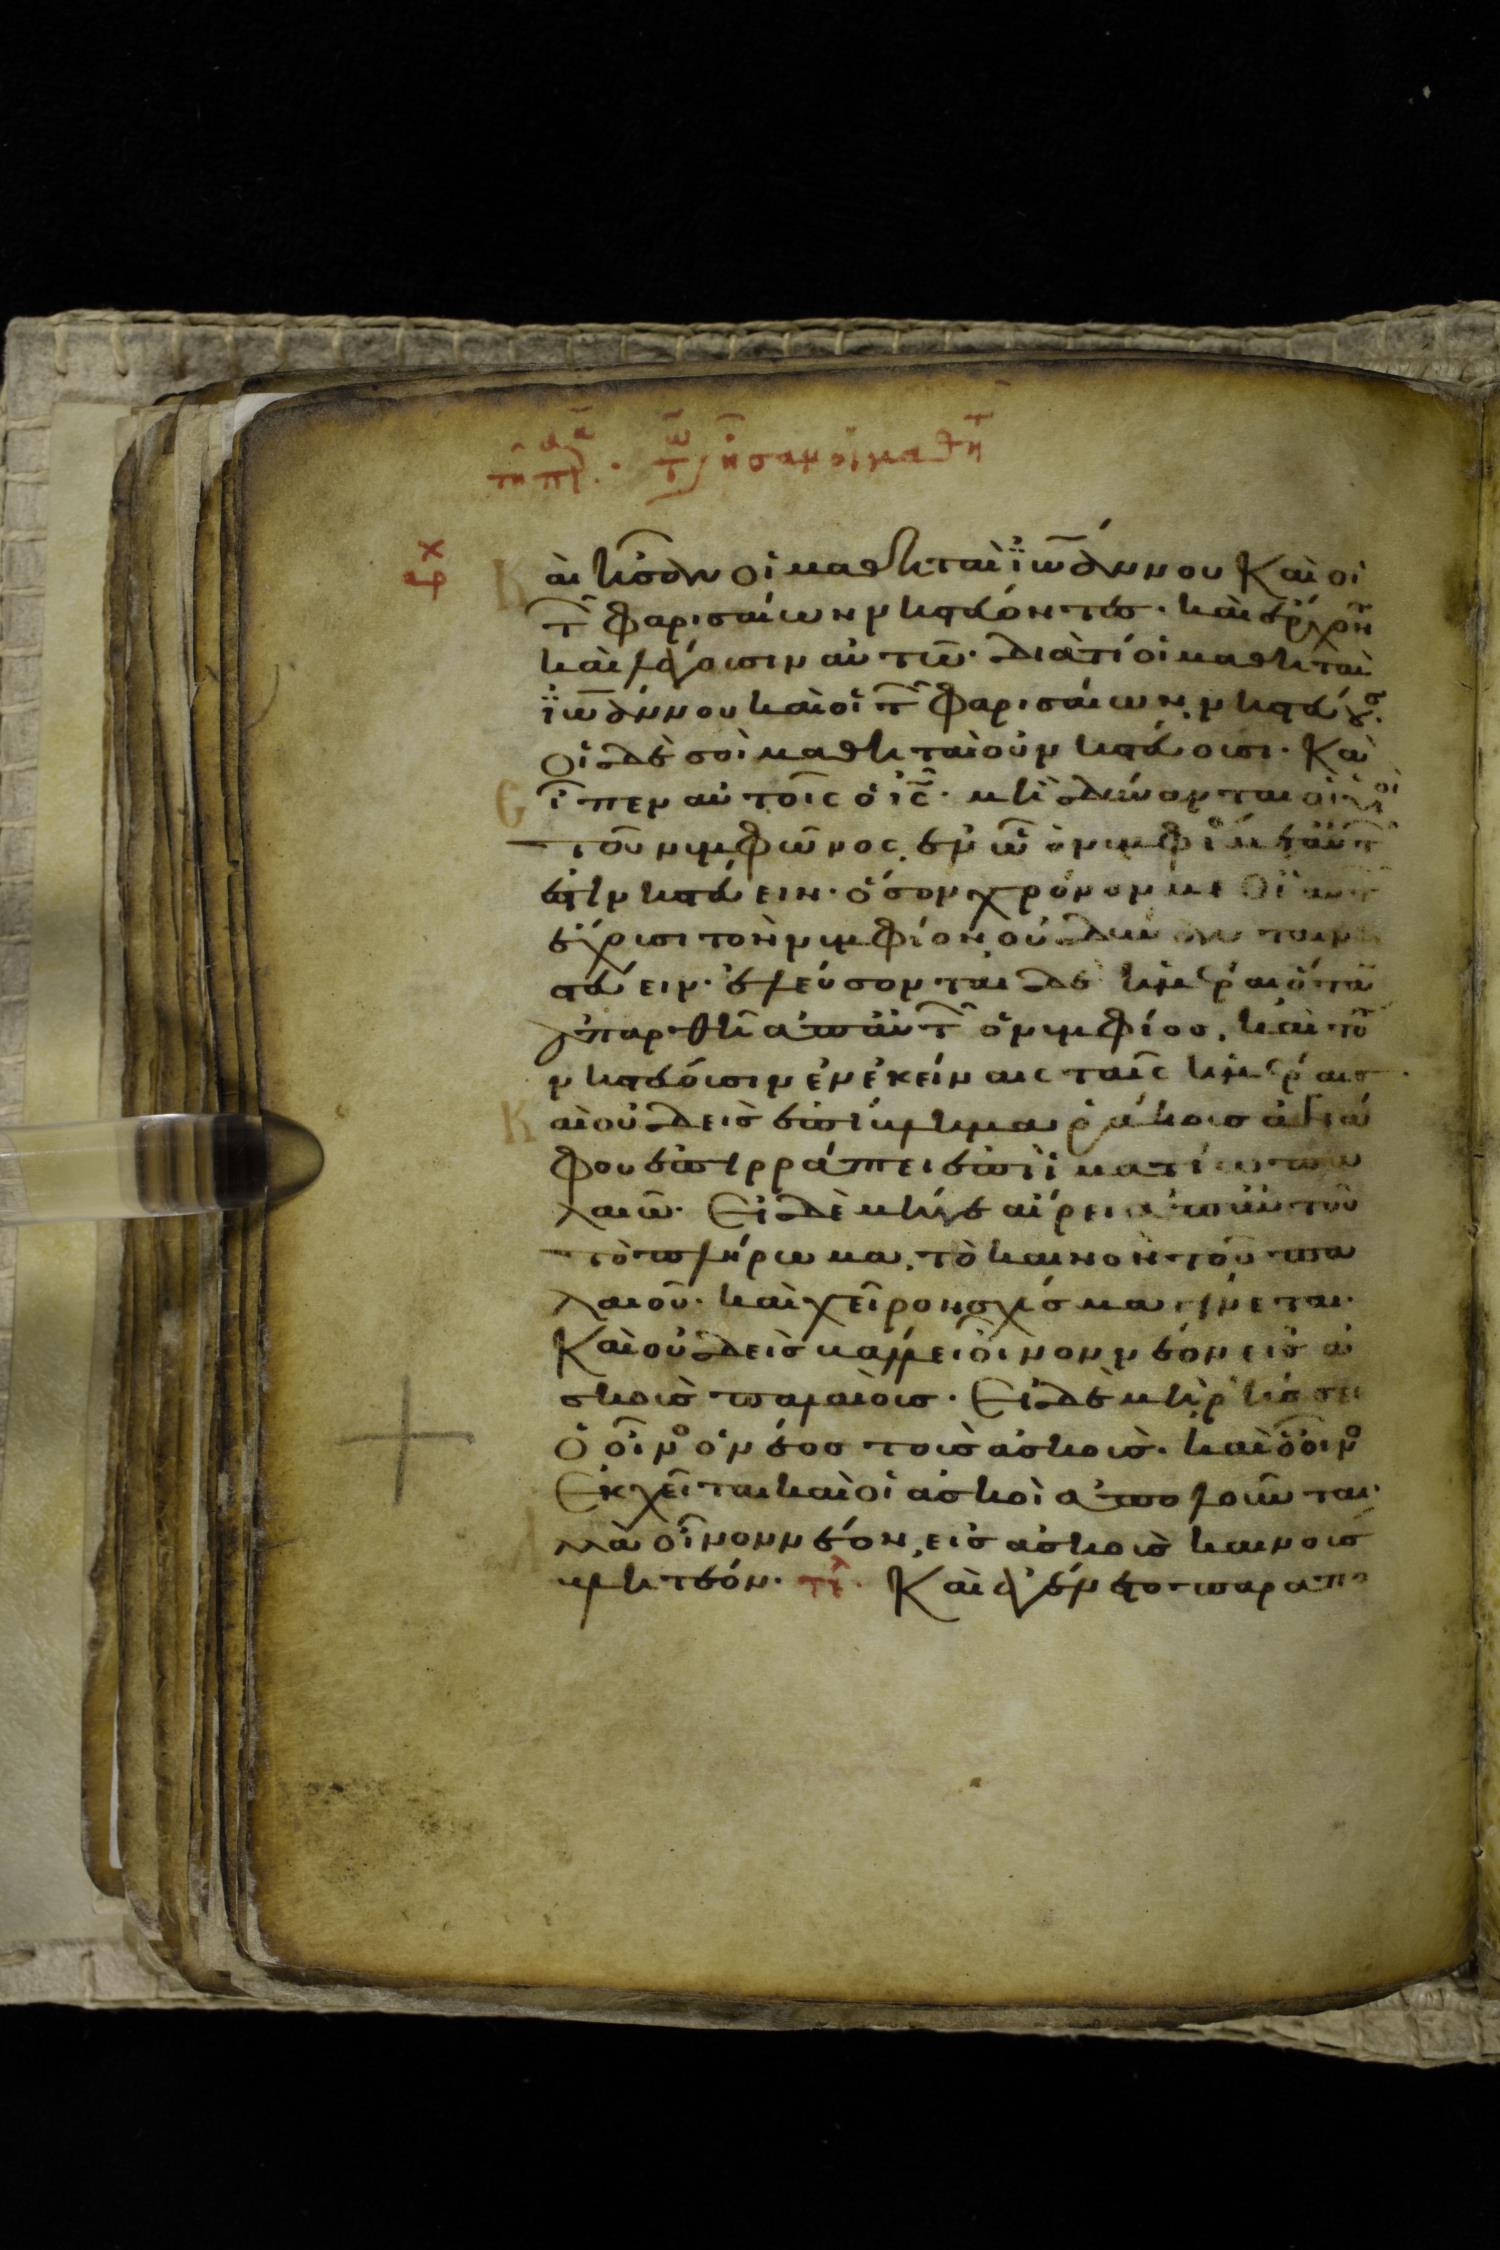 τῆ πρ. α τῶ κρ ἦσαν οἱ μαθητ
αρχ
Καὶ ἦσαν οἱ μαθηταὶ ἰω̅άννου Καὶ οἱ
τ̅ φαρισαίων νηστεύοντες· καὶ ἔρχον
καὶ λέγουσιν αὐτῶ· διατί οἱ μαθηταὶ
ἰω̅άννου καὶ οἱ τ̅ φαρισαίων νηστεύουσ·
οἱ δὲ σοὶ μαθηταὶ οὐ νηστεύουσι· Καὶ
εἶπεν αὐτοῖς ὁ ις̅· μὴ δύνανται οἱ υἱοὶ
τοῦ νυμφῶνος, ἐν ὧ ὁ νυμφί μετ αὐτ
ἐστὶ νηστεύειν· ὅσον χρόνον με
ἔχουσι τὸν νυμφίον, οὐ δύνανται νη
στεύειν· ἐλεύσονται δὲ ἡμέραι ὅταν
ἀπαρθῆ ἀπ' αὐτ ὁ νυμφίος, καὶ το
νηστεύουσιν ἐν ἐκείναις ταῖς ἡμέραις·
Καὶ οὐδεὶς ἐπίβλημα ῥάκους ἀγνά
φου ἐπιρράπτει ἐπὶ ἱματίω πα
λαιῶ· Εἰ δὲ μήγε αἴρει ἀπ' αὐτοῦ
τὸ πλήρωμα, τὸ καινὸν τοῦ πα
λαιοῦ· καὶ χεῖρον σχίσμα γίνεται·
Καὶ οὐδεὶς βάλλει οἶνον νέον εἰς ἀ
σκοὺς παλαιούς· Εἰ δὲ μὴ ῥήσσει
ὁ οἶνο ὁ νέος τοὺς ἀσκούς· καὶ ὁ οἶνο
Ἐκχεῖται καὶ οἱ ἀσκοὶ ἀπολοῦνται·
Ἀλλὰ οἶνον νέον, εἰς ἀσκοὺς καινοὺς
βλητέον· τελ. Καὶ ἐγένετο παραπο